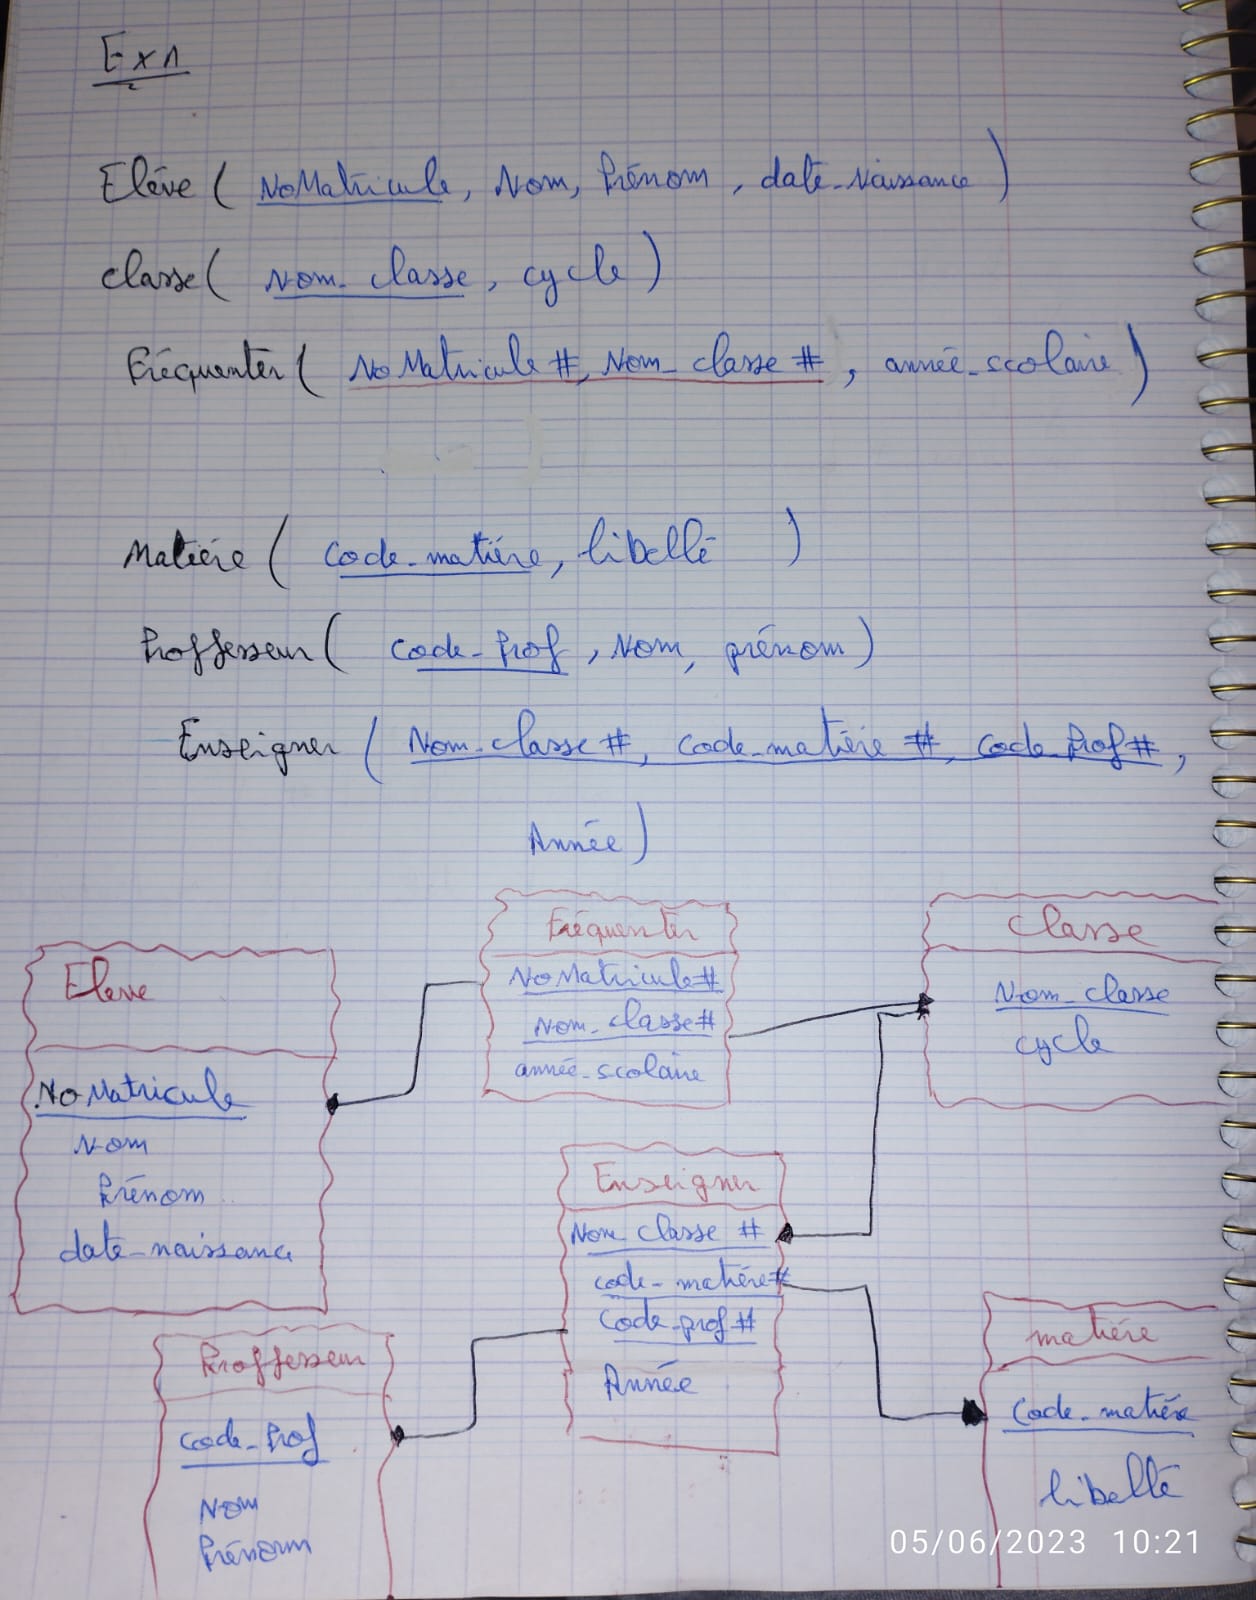 Ex1
Elève ( NoMatricule, Nom, Prénom, date_Naissance )
classe( Nom_classe, cycle )
Fréquenter ( NoMatricule #, Nom_classe #, année_scolaire )
Matière ( Code_matière, libellé )
Proffesseur ( Code_Prof, Nom, prénom )
Enseigner ( Nom_classe #, Code_matière #, Code_Prof #,
Année )
Eleve
NoMatricule
Nom
Prénom
date_naissance
Fréquenter
NoMatricule#
Nom_classe#
année_scolaire
Classe
Nom_classe
cycle
Enseigner
Nom classe #
code_matière#
Code_prof #
Année
Proffesseur
Code_Prof
Nom
Prénom
matière
Code_matière
libellé
05/06/2023 10:21